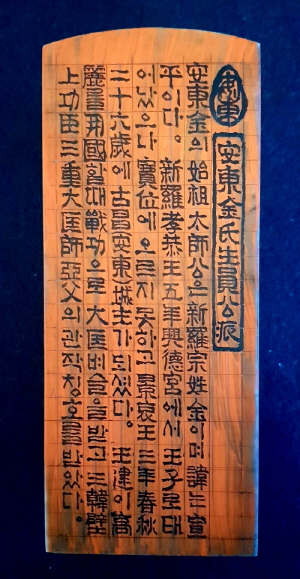 安東金氏生員公派
安東金의 始祖 太師公은 新羅宗姓金이며 諱는 宣
平이다. 新羅孝恭王五年興德宮에서 王子로 태
어났으나 寶位에 오르지 못하고 景哀王三年春秋
二十六歲에 古昌安東城主가 되셨다. 王建이 高
麗를 開國할때 戰功으로 大匡벼슬을 받고 三韓壁
上功臣三重大匡師亞父의 관작칭호를 받았다.